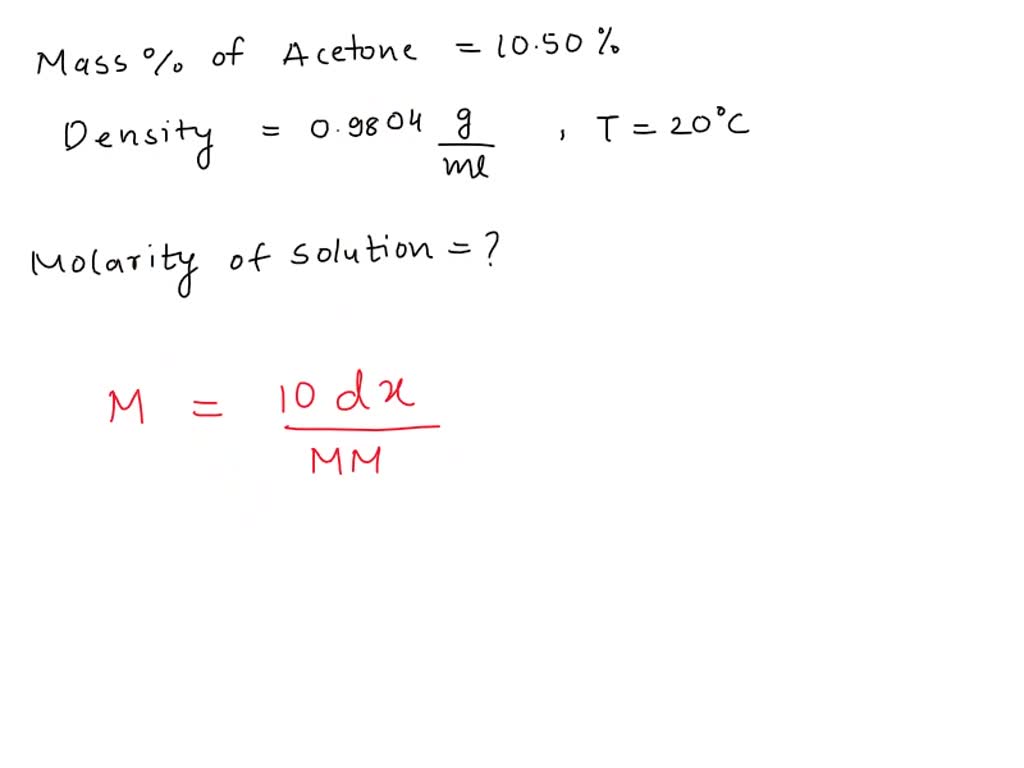 Mass % of Acetone = 10.50 %
Density = 0.9804 g/ml , T = 20°C
Molarity of solution = ?
M = 10 d x / MM